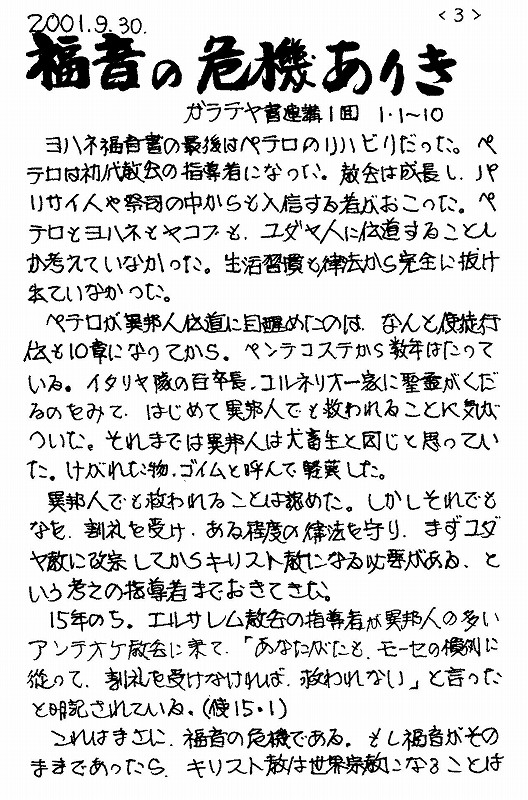 2001.9.30.
<3>
福音の危機ありき
ガラテヤ書連講1回 1・1~10
ヨハネ福音書の最後はペテロのリハビリだった。ペ
テロは初代教会の指導者になった。教会は成長し、パ
リサイ人や祭司の中からも入信する者がおこった。ペ
テロとヨハネとヤコブも、ユダヤ人に伝道することし
か考えていなかった。生活習慣も律法から完全に抜け
出ていなかった。
ペテロが異邦人伝道に目醒めたのは、なんと使徒行
伝も10章になってから。ペンテコステから数年はたって
いる。イタリヤ隊の百卒長、コルネリオ一家に聖霊がくだ
るのをみて、はじめて異邦人でも救われることに気が
ついた。それまでは異邦人は犬畜生と同じと思ってい
た。けがれた物、ゴイムと呼んで軽蔑した。
異邦人でも救われることは認めた。しかしそれでも
なを、割礼を受け、ある程度の律法を守り、まずユダ
ヤ教に改宗してからキリスト教になる必要がある、と
いう考えの指導者までおきてきた。
15年のち。エルサレム教会の指導者が異邦人の多い
アンテオケ教会に来て、「あなたがたも、モーセの慣例に
従って、割礼を受けなければ、救われない」と言った
と明記されている。(使15・1)
これはまさに、福音の危機である。もし福音がその
ままであったら、キリスト教は世界宗教になることは